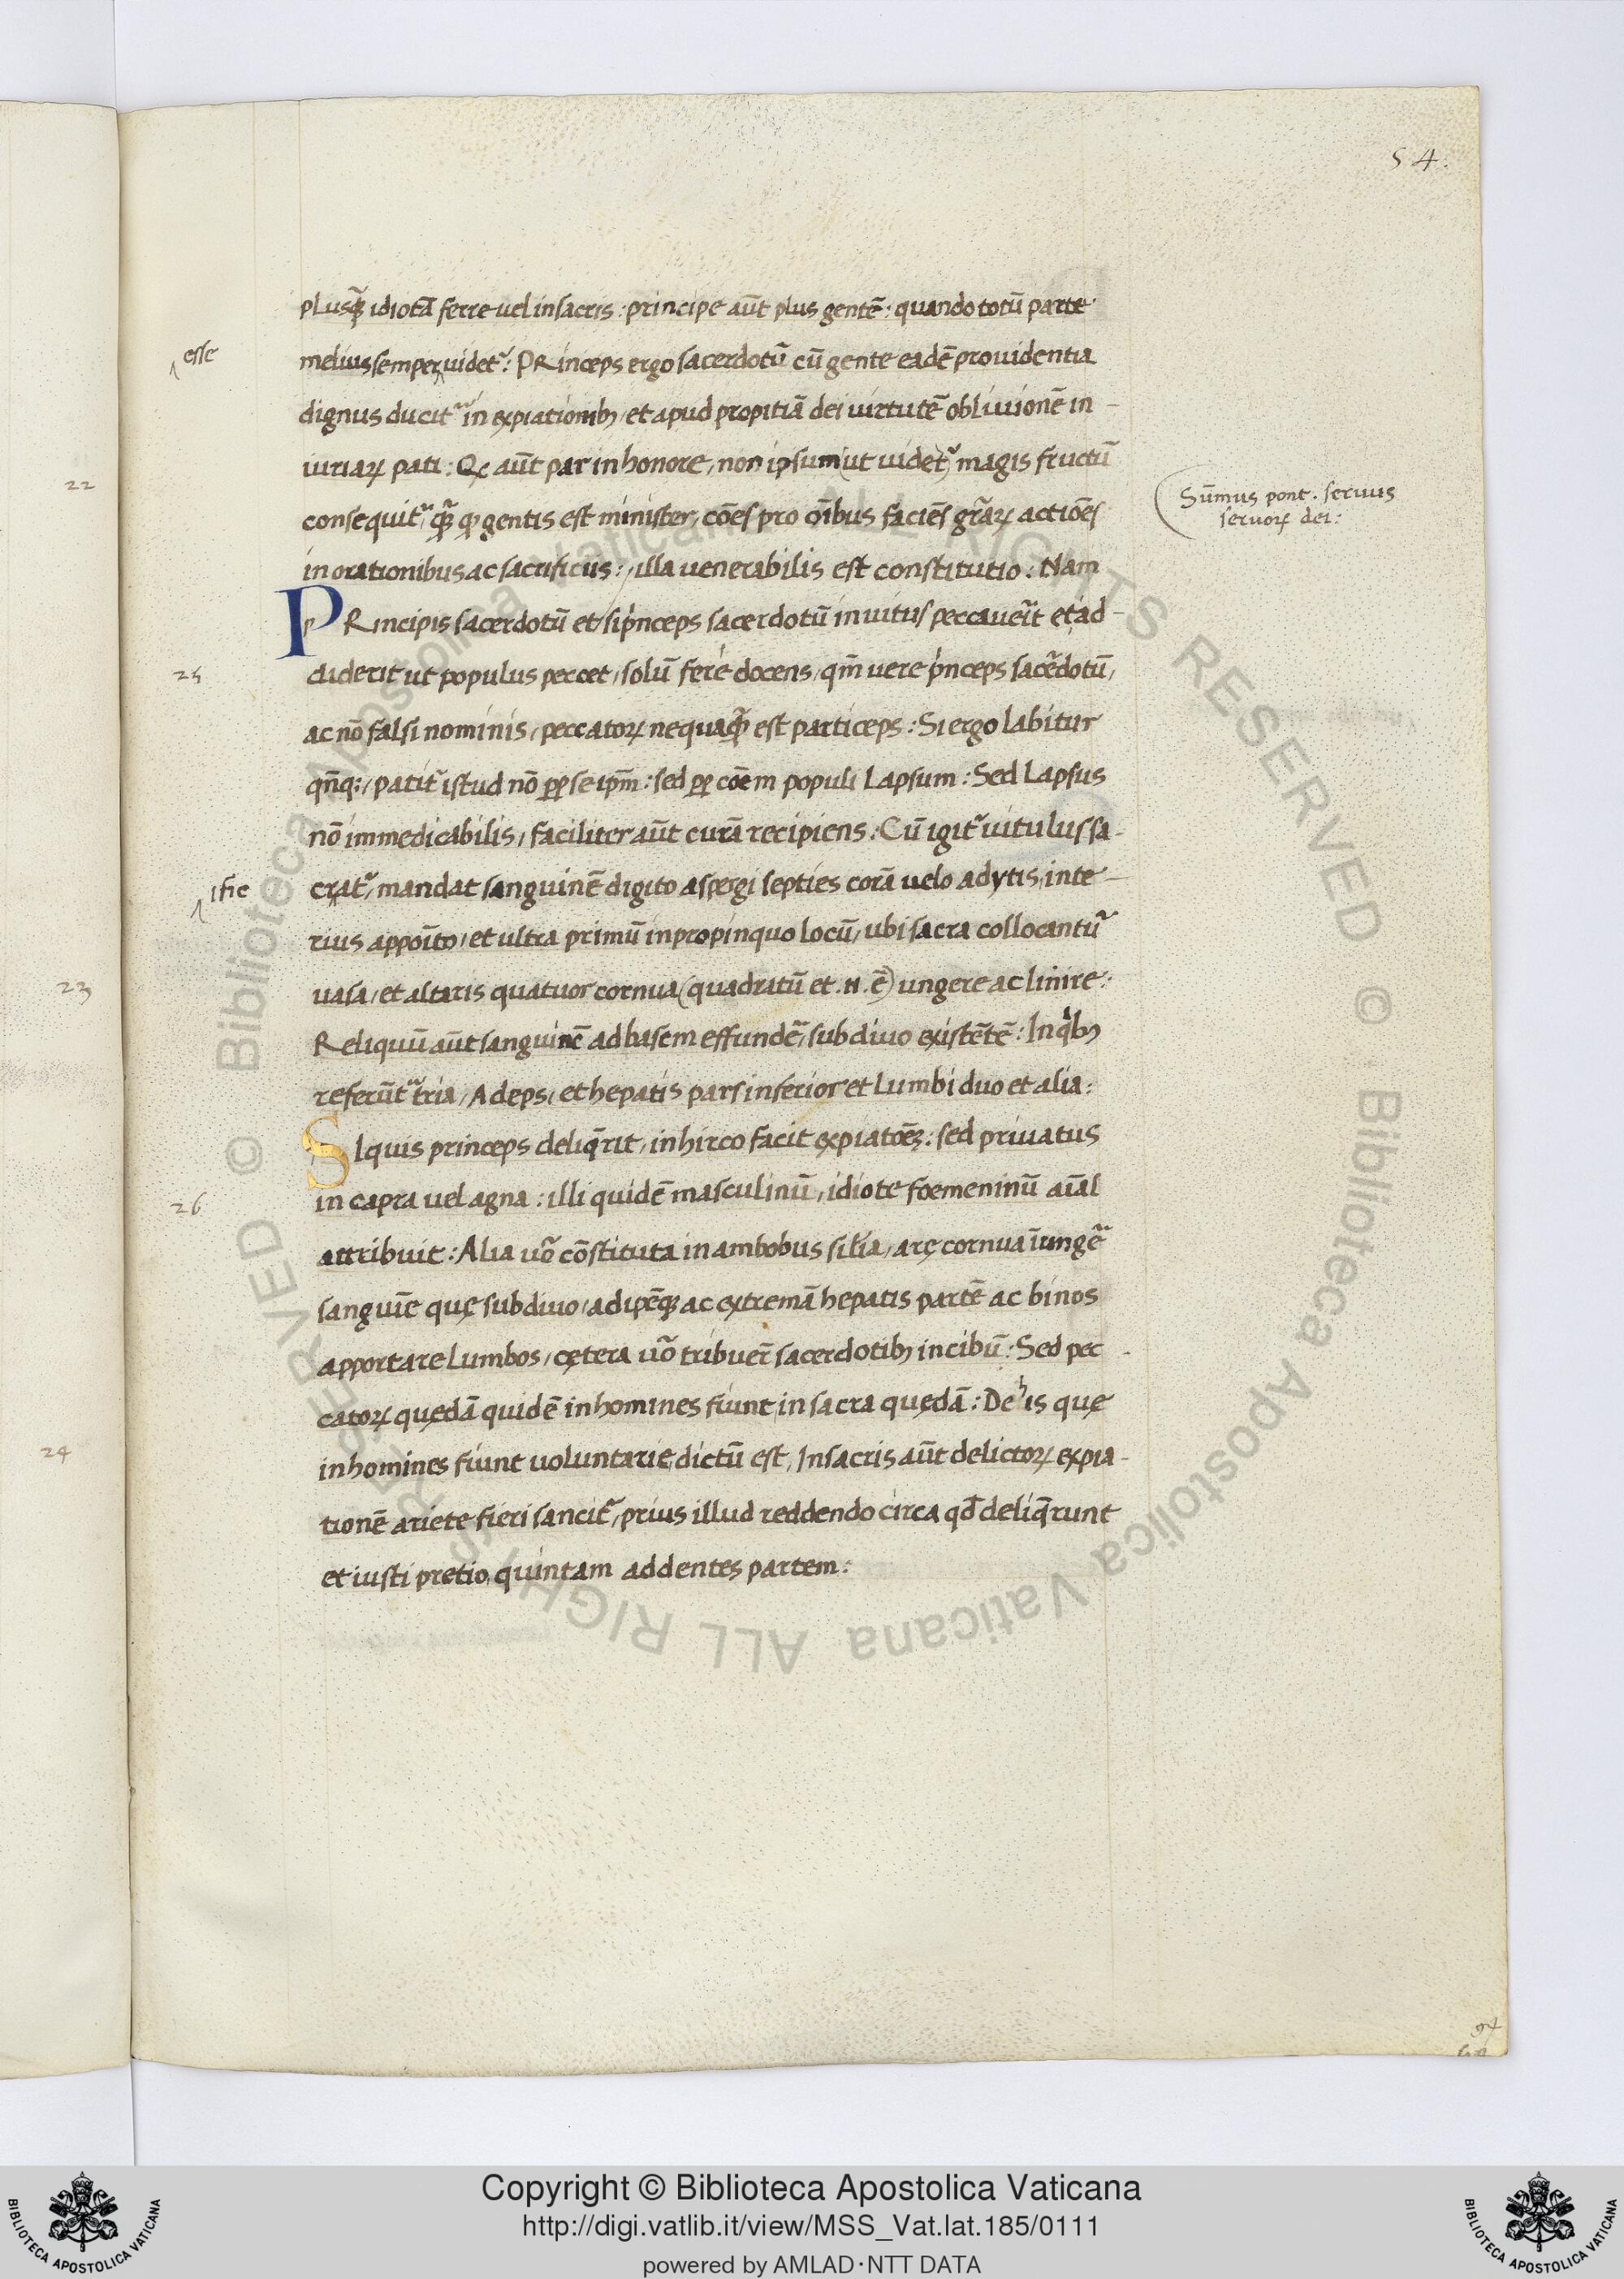 54.
plusq̃ idiotã ferre vel in sacris: principe aũt plus gentẽ: quando totũ parte
esse
melius semper videt᷑: PRinceps ergo sacerdotũ cũ gente eadẽ providentia
dignus ducit᷑ in expiationibꝫ, et apud propitiã dei virtutẽ oblivionẽ in-
iuriaꝝ pati: Qꝫ aũt par in honore, non ipsum (ut videt᷑) magis fructũ
22
consequit᷑, q̃ꝫ ꝙ gentis est minister, cões pro oĩbus faciẽs gr̃aꝝ actiões
Sũmus pont. servus
servoꝝ dei:
in orationibus ac sacrificiis:, illa venerabilis est constitutio: Nam
PRincipis sacerdotũ et, si p'nceps sacerdotũ invitus peccaveĩt et ad-
diderit ut populus peccet, solũ fere docens, qm̃ vere p'nceps sacẽdotũ,
25
ac nõ falsi nominis, peccatoꝝ nequaq̃ꝫ est particeps: Si ergo labitur
qñqꝫ, patit᷑ istud nõ ꝑ se ip̃m: sed ꝑ cõem populi lapsum: Sed lapsus
nõ immedicabilis, faciliter aũt curã recipiens: Cũ igit᷑ vitulus sa-
ific
crat᷑, mandat sanguinẽ digito aspergi septies corã velo adytis inte-
rius appoĩto, et ultra primũ in propinquo locũ, ubi sacra collocant᷑
vasa, et altaris quatuor cornua (quadratũ et .n. ẽ) ungere ac linire:
23
Reliquũ aũt sanguinẽ ad basem effundẽ, sub divo existẽtẽ: In q'bꝫ
referũt᷑ tria, Adeps, et hepatis pars inferior et lumbi duo et alia:
SIquis princeps deliq̃rit, in hirco facit expiatõeꝫ: sed privatus
in capra vel agna: illi quidẽ masculinũ, idiote foemeninũ aĩal
26
attribuit: Alia võ cõstituta in ambobus sil̃ia, arę cornua iungẽ
sanguĩe quę sub divo, adipẽqꝫ ac extremã hepatis partẽ ac binos
apportare lumbos, cętera võ tribuer̃ sacerdotibꝫ in cibũ: Sed pec-
catoꝝ quędã quidẽ in homines fiunt in sacra quędã: De his quę
in homines fiunt voluntarie dictũ est, In sacris aũt delictoꝝ expia-
24
tionẽ ariete fieri sancit᷑, prius illud reddendo circa qđ deliq̃runt
et iusti pretio, quintam addentes partem:
94
© Biblioteca Apostolica Vaticana ALL RIGHTS RESERVED © Biblioteca Apostolica Vaticana ALL RIGHTS RESERVED
Copyright © Biblioteca Apostolica Vaticana
http://digi.vatlib.it/view/MSS_Vat.lat.185/0111
powered by AMLAD·NTT DATA
BIBLIOTECA APOSTOLICA VATICANA
BIBLIOTECA APOSTOLICA VATICANA